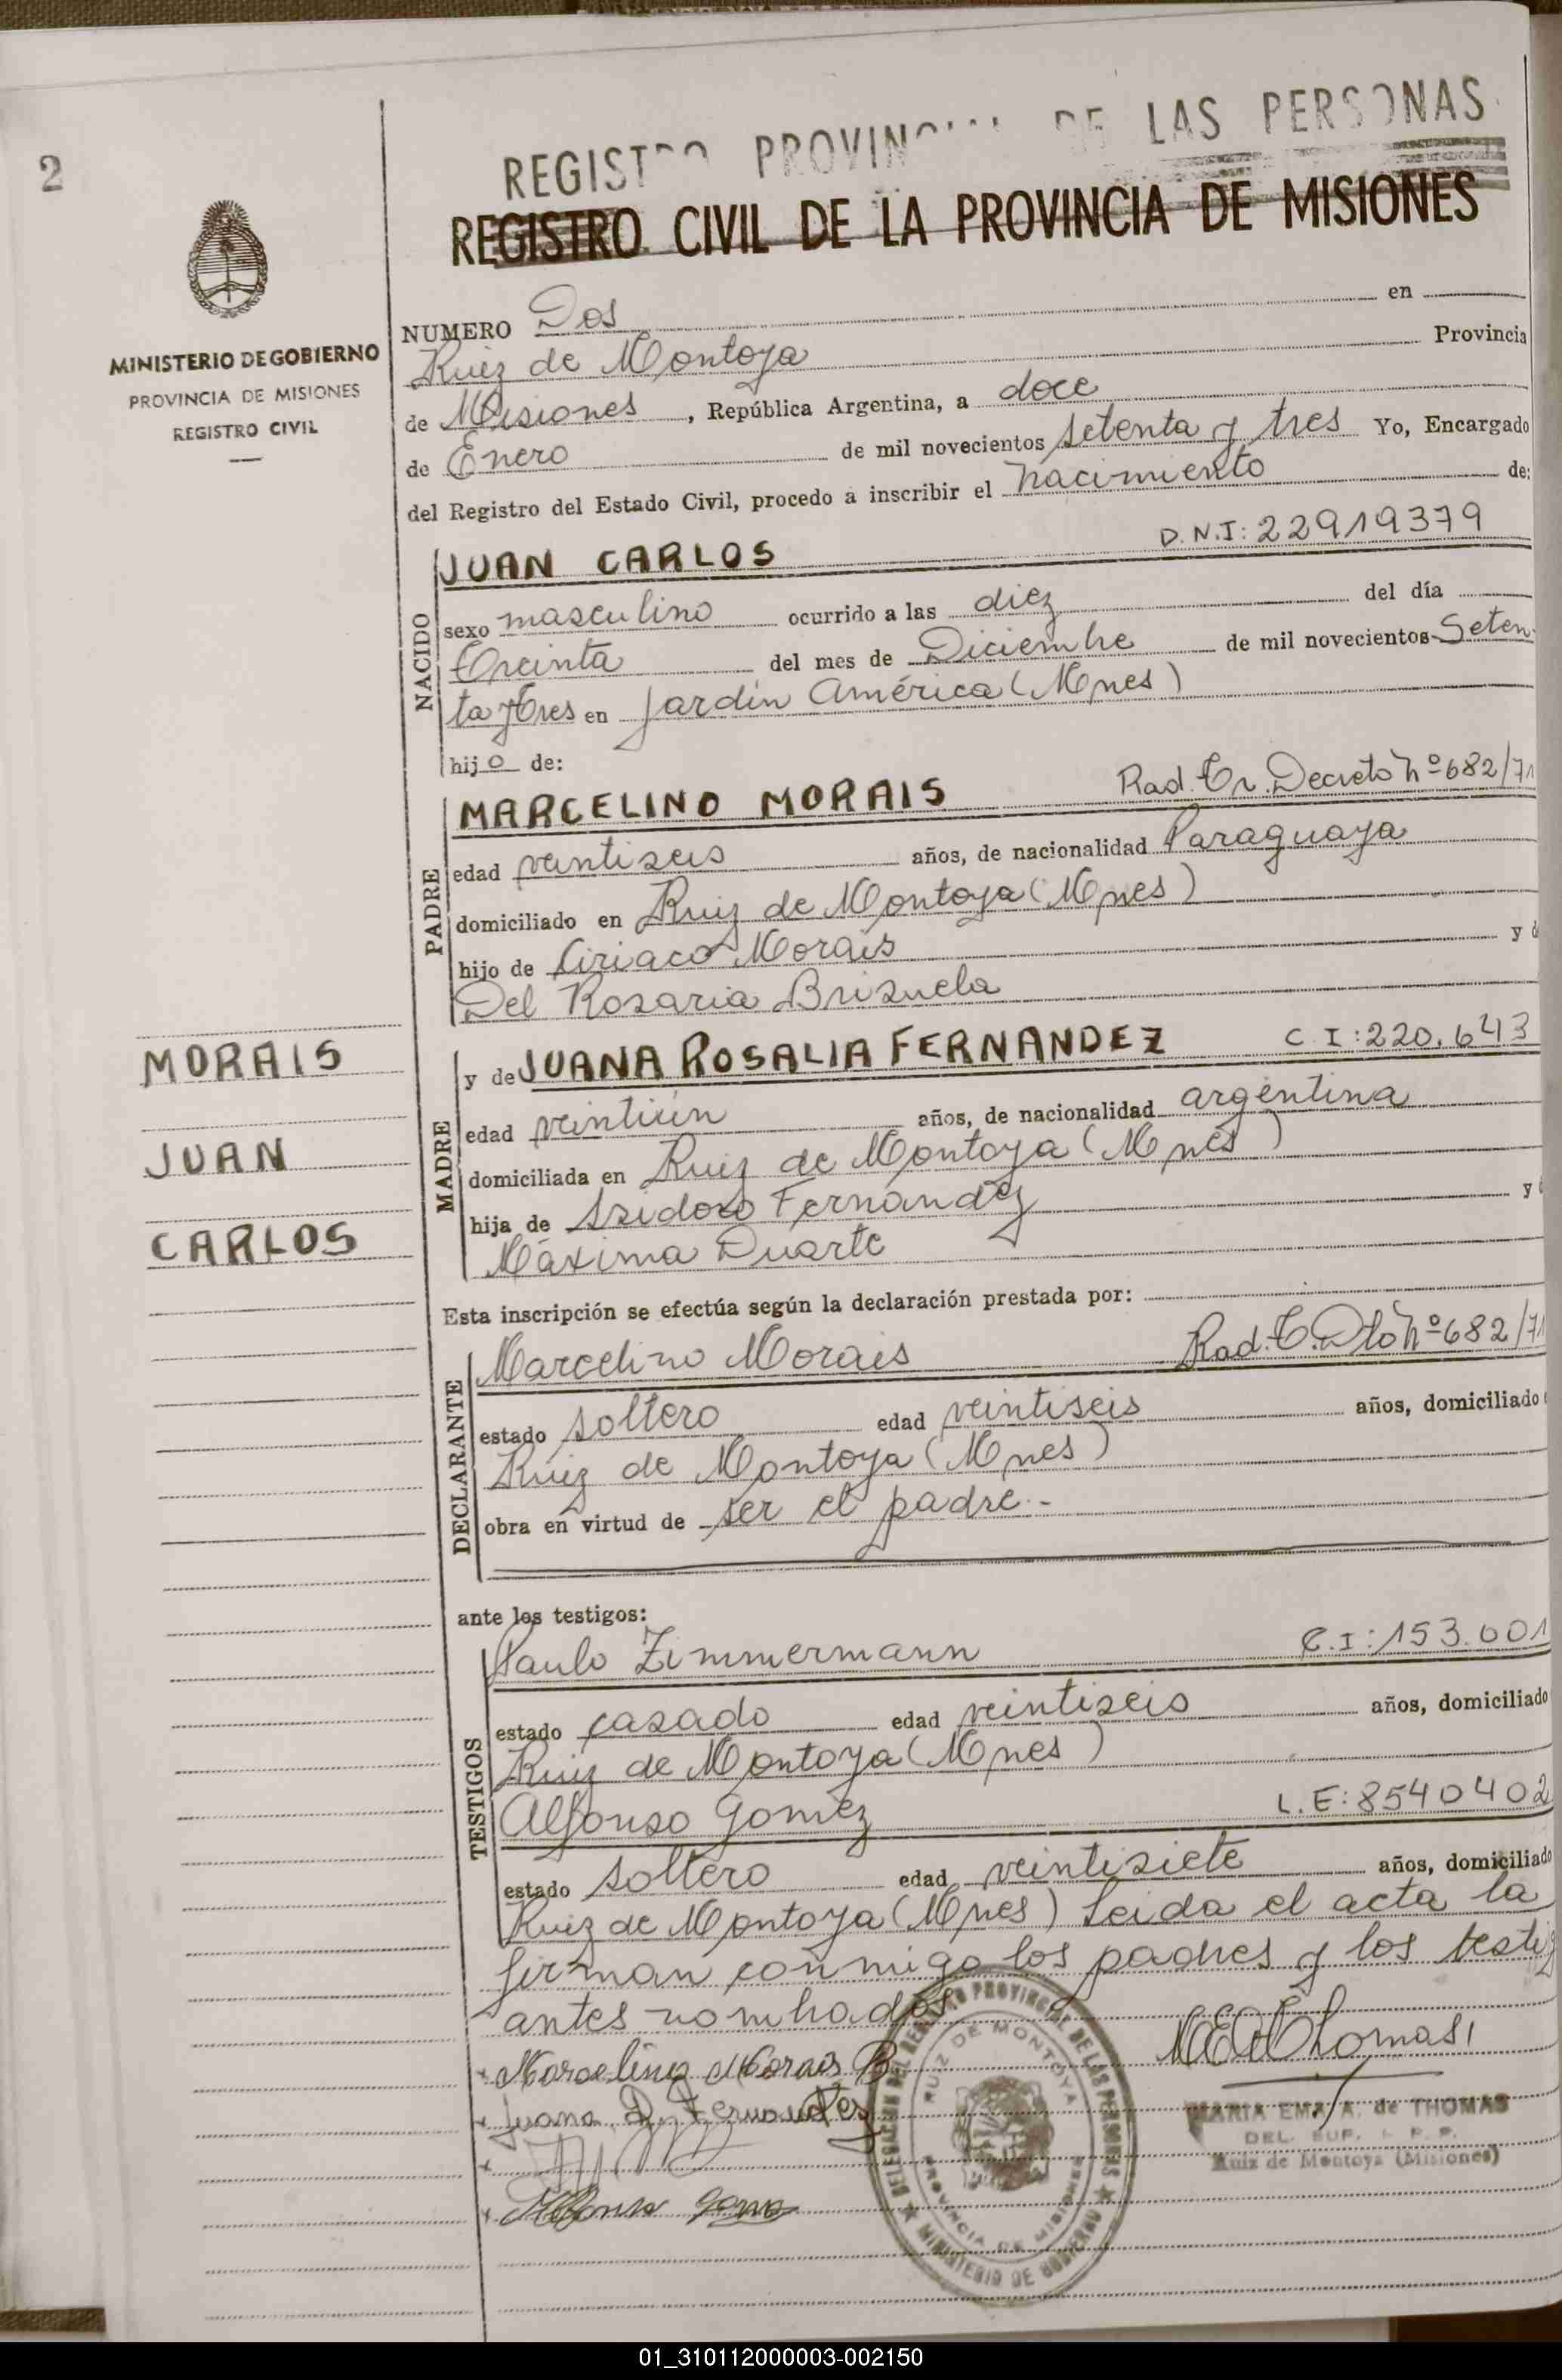 2
REGISTRO PROVINCIAL DE LAS PERSONAS
REGISTRO CIVIL DE LA PROVINCIA DE MISIONES
MINISTERIO DE GOBIERNO
PROVINCIA DE MISIONES
REGISTRO CIVIL
NUMERO Dos en
Ruiz de Montoya Provincia
de Misiones, República Argentina, a doce
de Enero de mil novecientos setenta y tres Yo, Encargado
del Registro del Estado Civil, procedo a inscribir el nacimiento de:
NACIDO
JUAN CARLOS D.N.I: 22919379
sexo masculino ocurrido a las diez del día
treinta del mes de Diciembre de mil novecientos Seten
ta y tres en Jardín América (Mnes)
hijo de:
PADRE
MARCELINO MORAIS Rad. Tr. Decreto Nº 682/71
edad veintiseis años, de nacionalidad Paraguaya
domiciliado en Ruiz de Montoya (Mnes)
hijo de Ciriaco Morais y d
Del Rosaria Brizuela
MADRE
y de JUANA ROSALIA FERNANDEZ C.I: 220.643
edad veintiún años, de nacionalidad argentina
domiciliada en Ruiz de Montoya (Mnes)
hija de Isidoro Fernandez y
Máxima Duarte
MORAIS
JUAN
CARLOS
Esta inscripción se efectúa según la declaración prestada por:
DECLARANTE
Marcelino Morais Rad. T. Dto Nº 682/71
estado soltero edad veintiseis años, domiciliado
Ruiz de Montoya (Mnes)
obra en virtud de ser el padre.-
ante los testigos:
TESTIGOS
Paulo Zimmermann C.I: 153.001
estado casado edad veintiseis años, domiciliado
Ruiz de Montoya (Mnes)
Alfonso Gomez L.E: 8540402
estado soltero edad veintisiete años, domiciliado
Ruiz de Montoya (Mnes) Leida el acta la
firman conmigo los padres y los testig
antes nombrados.
Marcelino Morais B
Juana R. Fernandez
Alfonso Gomez
DELEGACION DEL REGISTRO PROVINCIAL DE LAS PERSONAS
RUIZ DE MONTOYA
PROVINCIA DE MISIONES
MINISTERIO DE GOBIERNO
MARIA EMA A. de THOMAS
DEL. SUP. R. P. P.
Ruiz de Montoya (Misiones)
01_310112000003-002150